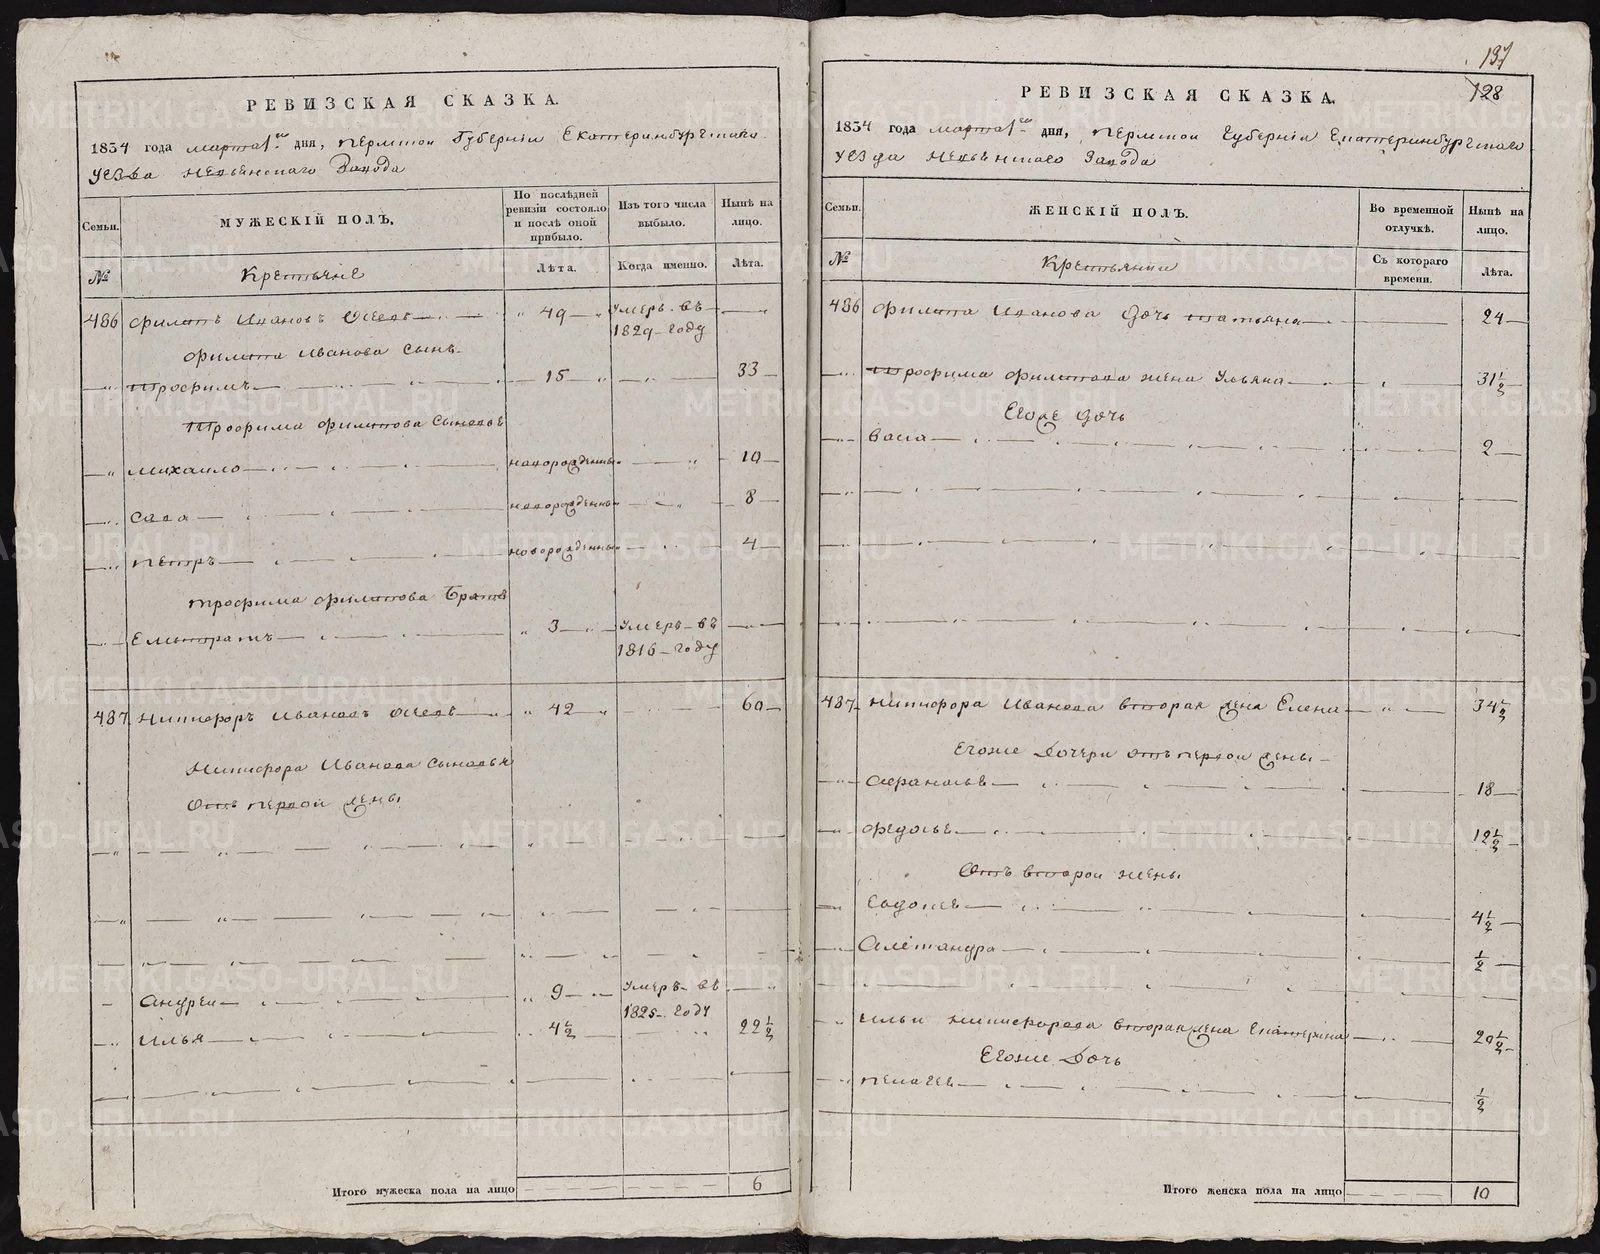 РЕВИЗСКАЯ СКАЗКА.
1834 года марта 1го дня, Пермской Губернии Екатеринбургскаго
уезда Невьянскаго Завода
Семьи.
МУЖЕСКІЙ ПОЛЪ.
По послѣдней ревизіи состояло и послѣ оной прибыло.
Изъ того числа выбыло.
Нынѣ на лицо.
№
Крестьяне
Лѣта.
Когда именно.
Лѣта.
486 Филипъ Ивановъ 49 умеръ въ
1829 году
Филипа Иванова сынъ
Трофимъ 15 33
Трофима Филипова сыновья
Михаило новорожденны 10
Сава новорожденны 8
Петръ новорожденны 4
Трофима Филипова Братъ
3 умеръ въ
1816 году
487 Никифоръ Ивановъ 42 60
Никифора Иванова сыновья
Отъ первой жены
Андреи 9 умеръ въ
1825 году
Илья 4½ 22½
Итого мужеска пола на лицо 6
137
128
РЕВИЗСКАЯ СКАЗКА.
1834 года марта 1го дня, Пермской Губерніи Екатеринбургскаго
уезда Невьянскаго Завода
Семьи.
ЖЕНСКІЙ ПОЛЪ.
Во временной отлучкѣ.
Нынѣ на лицо.
№
Крестьянки
Съ котораго времени.
Лѣта.
486 Филипа Иванова дочь Татьяна 24
Трофима Филипова жена Ульяна 31½
Егоже дочь
Васа 2
487 Никифора Иванова вторая жена Елена 34½
Егоже Дочери отъ первой жены
18
Федосья 12½
Отъ второй жены
4½
Александра ½
Ильи Никифорова вторая жена Екатерина 20½
Егоже Дочь
Пелагея ½
Итого женска пола на лицо 10
METRIKI.GASO-URAL.RU